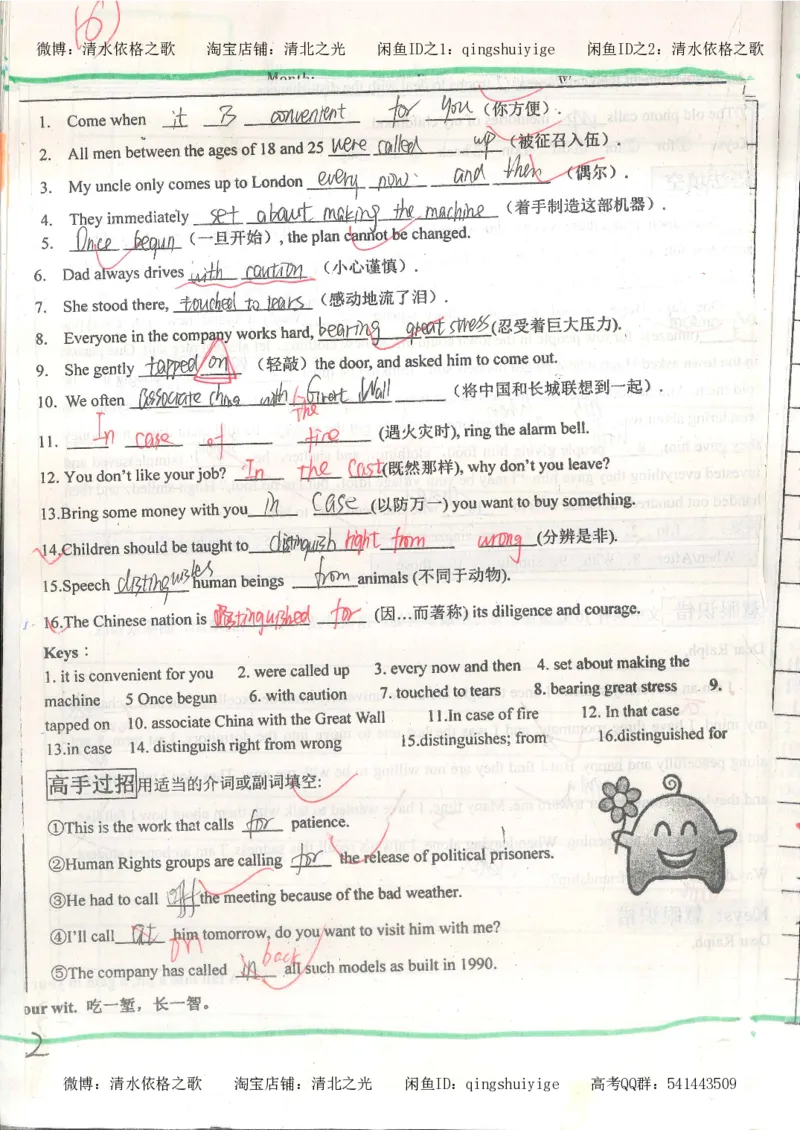 (6)
微博：清水依格之歌 淘宝店铺：清北之光 闲鱼ID之1：qingshuiyige 闲鱼ID之2：清水依格之歌
1. Come when it is convenient for you (你方便).
2. All men between the ages of 18 and 25 were called up (被征召入伍).
3. My uncle only comes up to London every now and then (偶尔).
4. They immediately set about making the machine (着手制造这部机器).
5. Once begun (一旦开始), the plan cannot be changed.
6. Dad always drives with caution (小心谨慎).
7. She stood there, touched to tears (感动地流了泪).
8. Everyone in the company works hard, bearing great stress (忍受着巨大压力).
9. She gently tapped on (轻敲) the door, and asked him to come out.
10. We often associate China with the Great Wall (将中国和长城联想到一起).
11. In case of fire (遇火灾时), ring the alarm bell.
12. You don't like your job? In the cast (既然那样), why don't you leave?
13.Bring some money with you in case (以防万一) you want to buy something.
14.Children should be taught to distinguish right from wrong (分辨是非).
15.Speech distinguishes human beings from animals (不同于动物).
16.The Chinese nation is distinguished for (因…而著称) its diligence and courage.
Keys：
1. it is convenient for you 2. were called up 3. every now and then 4. set about making the
machine 5 Once begun 6. with caution 7. touched to tears 8. bearing great stress 9.
tapped on 10. associate China with the Great Wall 11.In case of fire 12. In that case
13.in case 14. distinguish right from wrong 15.distinguishes; from 16.distinguished for
高手过招 用适当的介词或副词填空:
①This is the work that calls for patience.
②Human Rights groups are calling for the release of political prisoners.
③He had to call off the meeting because of the bad weather.
④I'll call at him tomorrow, do you want to visit him with me?
on
back
⑤The company has called in all such models as built in 1990.
our wit. 吃一堑，长一智。
2
微博：清水依格之歌 淘宝店铺：清北之光 闲鱼ID：qingshuiyige 高考QQ群：541443509